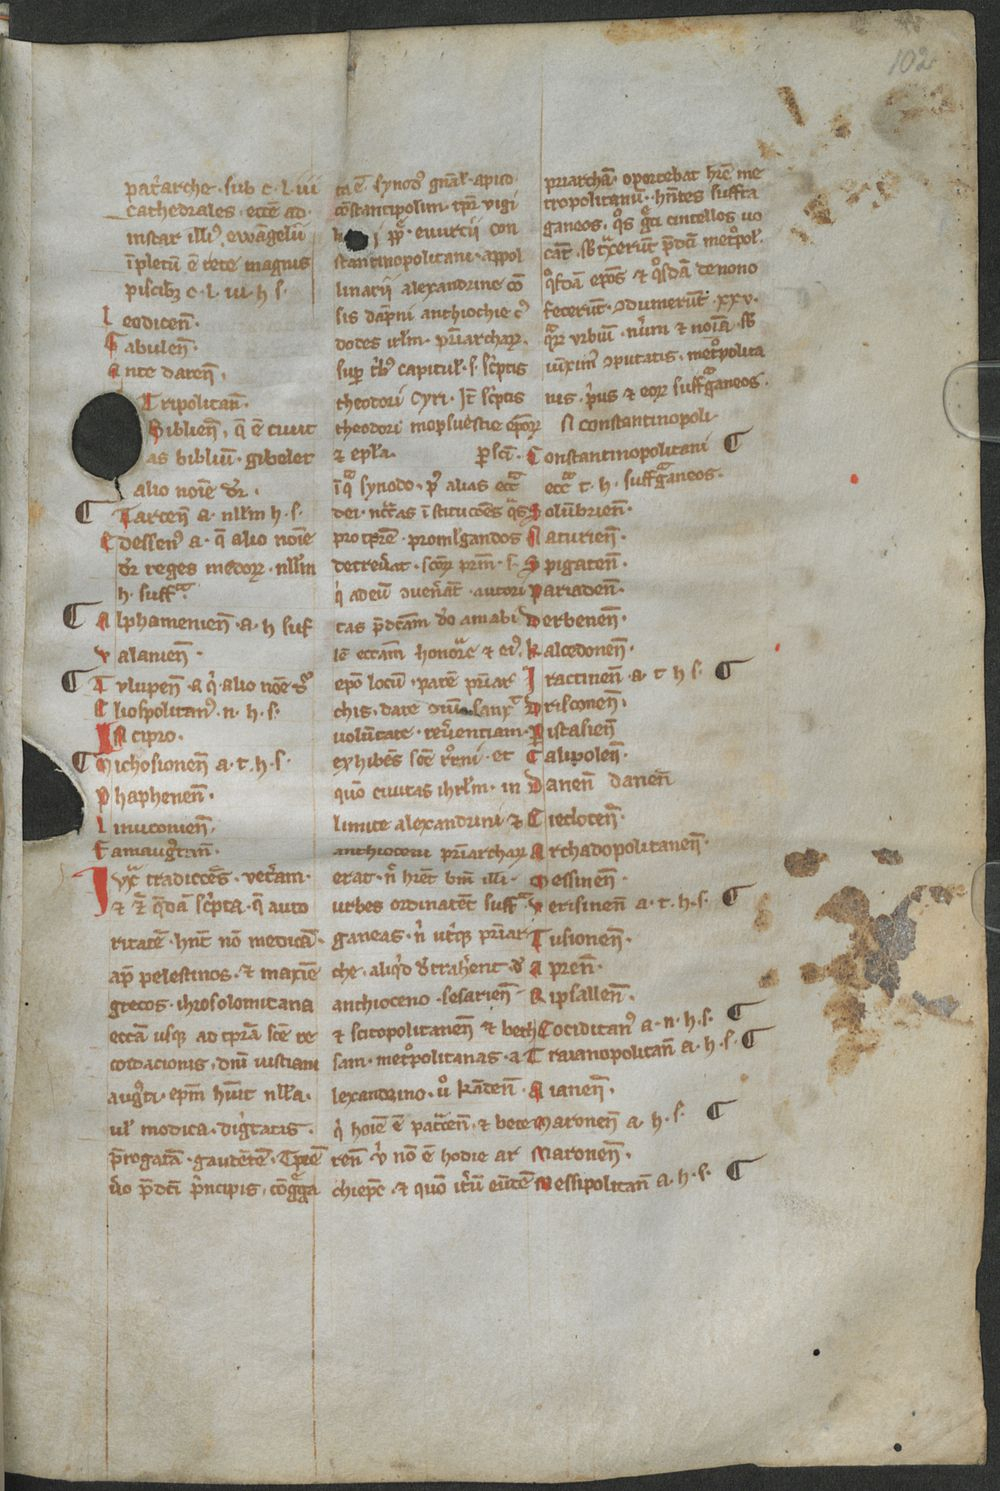 102
pat'arche · sub c · l · iii
cathedrales · ecce ad
instar illi' ewāgelii
īpletū ē rete magnis
piscibȝ c · l · iii · h s ·
Leodicen̄ ·
Gabulen̄ ·
Ante daren̄ ·
Tripolitan̄ ·
Biblien̄ , q̄ ē ciuit
as bibliū · gibelet
alio noīe dr̄ ·
Tarcen̄ a · nllm h · s ·
Edessen' a · q̄ alio noīe
dr̄ reges medoꝝ · nllm
h · suffa ·
Alphamenien̄ · a · h suf
Valanien̄ ·
Tylupen̄ · a q' alio noē dr̄
Eliospolitan' · n · h · s ·
IN cipro ·
Nichosionen̄ a · t · h · s ·
Phaphenen̄ ·
Linuconien̄ ·
Famaug'tan̄ ·
Iuxͣ tradicc̄oēs · vet'am ·
⁊ q̄dā sc'pta · q̄ aucto
ritatē · hn̄t nō modicā
ap̄ pelestinos · ⁊ maxīe
grecos · ihrosolomitana
ecc̄a usq̄ ad tp̄ra sc̄e re
cordacionis · dn̄i iustiani
aug'ti · ep̄m hūit nllā ·
ul' modica · dig'tatis ·
p̄rogatā · gaudētē · Tp̄re
v'o p̄dc̄i p'ncipis , cōgͣga
ta ē synod' gn̄alʼ · apud
cōstantipolim · tp̄r vigi
pp̄ · euurcii con
stantinopolitani · appol
linarii alexandrine cō
sis dāpni anthiochie c'
dotes irl'm · pr̄iarchaꝝ ·
sup t'bȝ capitul' · s · sc'ptis
theodori cyri · It̄ sc'ptis
theodori mopsuestie ep̄oꝝ
⁊ epl'a · p̄sc̄i ·
ī qͣ synodo · p' alias ecc̄a
dei · nccrā̄s īstituc̄oēs qͣs
pro tp̄re · promlʼgandos
decreu'at · sc̄oꝝ prm̄ · s ·
q' ad eū ɔuen'āt · autori
tas p̄dc̄am v'o amabi
lē ecc̄am honorͣe ⁊ ei' ·
ep̄o locū · patē pr̄iar
chis · dare
volūtate · reu'entiam
exhibēs sc̄e · et
quō ciuitas ihrl'm · in
limite alexandrini ⁊
anthioceni pr̄iarchaꝝ
erat · n̄ hret̄ bm̄ illi ·
urbes ordinatēt suffͣ
ganeas · n' ut'q̄ pr̄iar
che , aliq'd d'trah'ent · d'
anthioceno · sesarien̄
⁊ scitopolitanen̄ ⁊ beth
sam · met'politanas · a
lexandrino · v'o · kāden̄ ·
q' hoīe ē patͣcen̄ · ⁊ bere
ren̄ q' nō ē hodie ar
chiep̄c · ⁊ quō it'ū eūtē
priarchā · oportebat hr̄e me
tropolitanū · hn̄tes suffra
ganeos , q's gͣci cincellos uo
cāt · sʒ tͣxerūt p̄dc̄ū met'pol' ·
q'sdā ep̄os ⁊ q'sdā de nono
fecerūt · ɔdumerūt · xxv ·
qͣꝝ urbiū · nūm ⁊ noīa · sʒ
iūxim' ɔputatis · met'polita
nis · p'us ⁊ eoꝝ suffͣganeos ·
IN constantinopoli ·
Constantinopolitani
ecc̄a t · h · suffͣganeos ·
Solūbrien̄ ·
Naturien̄ ·
Spigaten̄ ·
Pariaden̄ ·
Derbenen̄ ·
Kalcedonen̄ ·
Iractinen̄ · a · t h s ·
Drisconen̄ ·
Pistasien̄
Calipolen̄ ·
Danen̄ danen̄
Cieclocen̄ ·
Archadopolitanen̄ ·
Messinen̄ ·
Verisinen̄ a · t · h · s ·
Tusionen̄ ·
Apren̄ ·
Ripsallen̄ ·
Cociditan' a · n · h · s ·
Traianopolitan̄ a · h · s ·
Aianen̄ ·
Maronen̄ a · h · s ·
Maronen̄ ·
Messipolitan̄ a · h · s ·